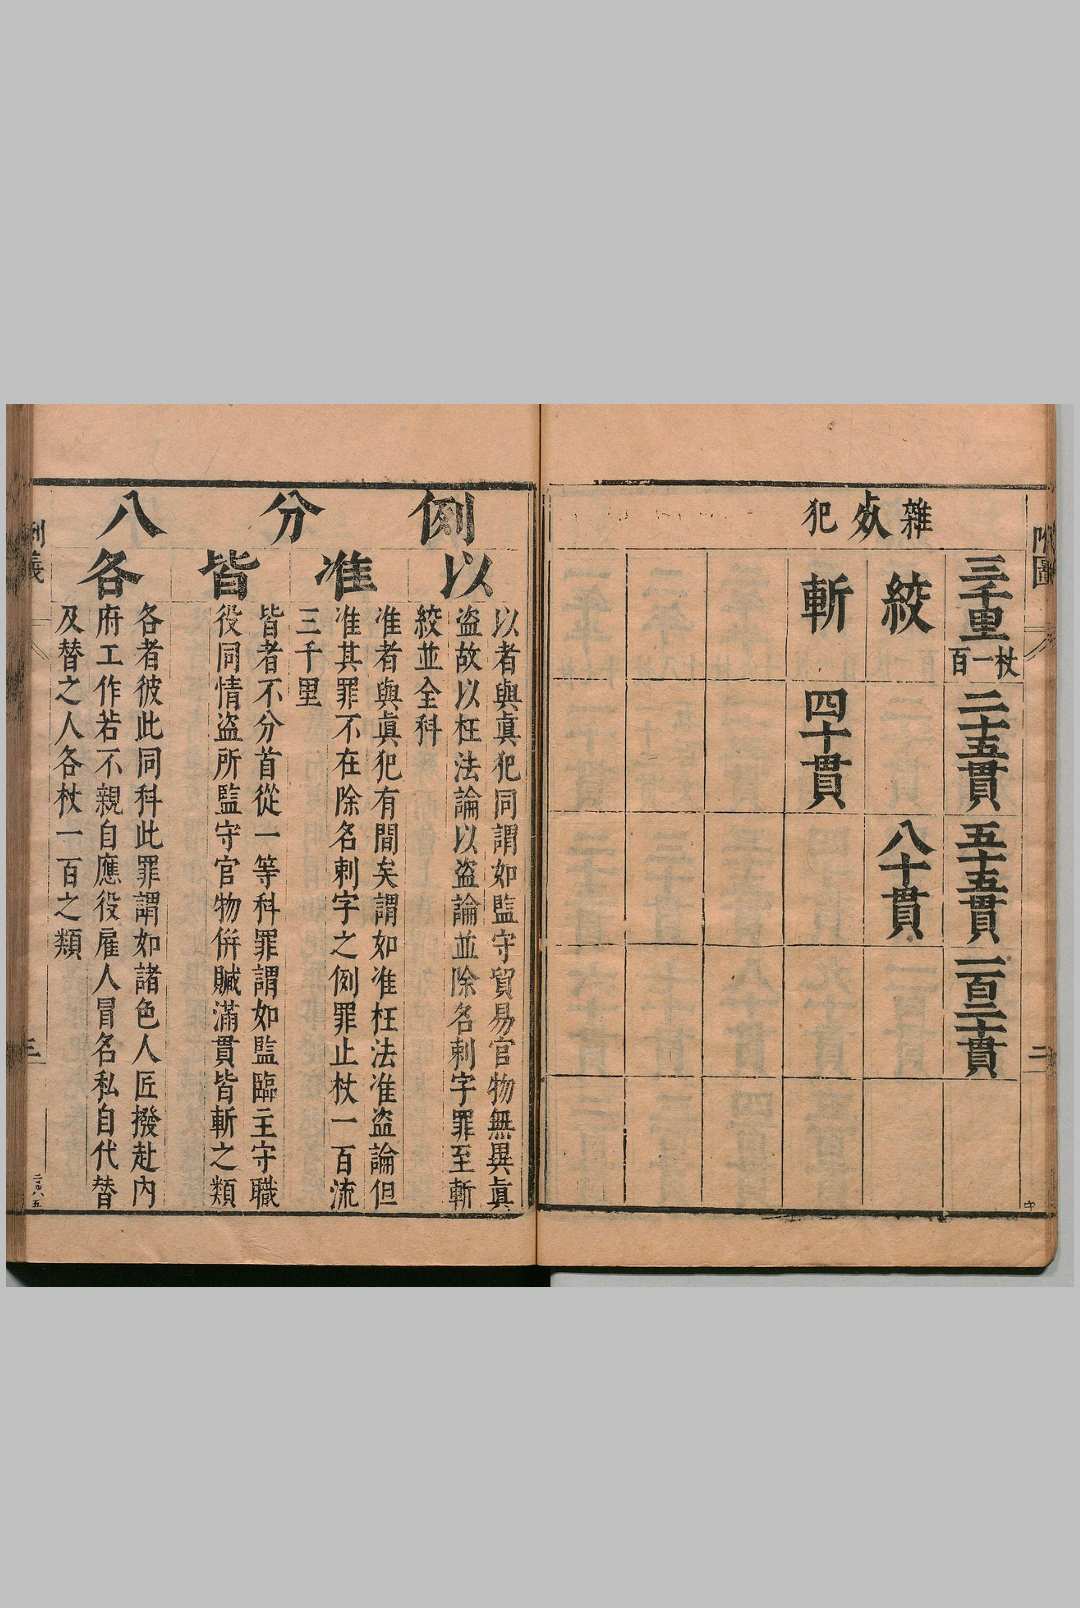 附圖
三千里杖一百
二十五貫
五十五貫
一百二十貫
絞
八十貫
雜犯
斬
四十貫
二
例分八
以
以者與眞犯同謂如監守貿易官物無異眞
盜故以枉法論以盜論並除名刺字罪至斬
絞並全科
准
准者與眞犯有間矣謂如准枉法准盜論但
准其罪不在除名刺字之例罪止杖一百流
三千里
皆
皆者不分首從一等科罪謂如監臨主守職
役同情盜所監守官物併贓滿貫皆斬之類
各
各者彼此同科此罪謂如諸色人匠撥赴內
府工作若不親自應役雇人冒名私自代替
及替之人各杖一百之類
例義
三